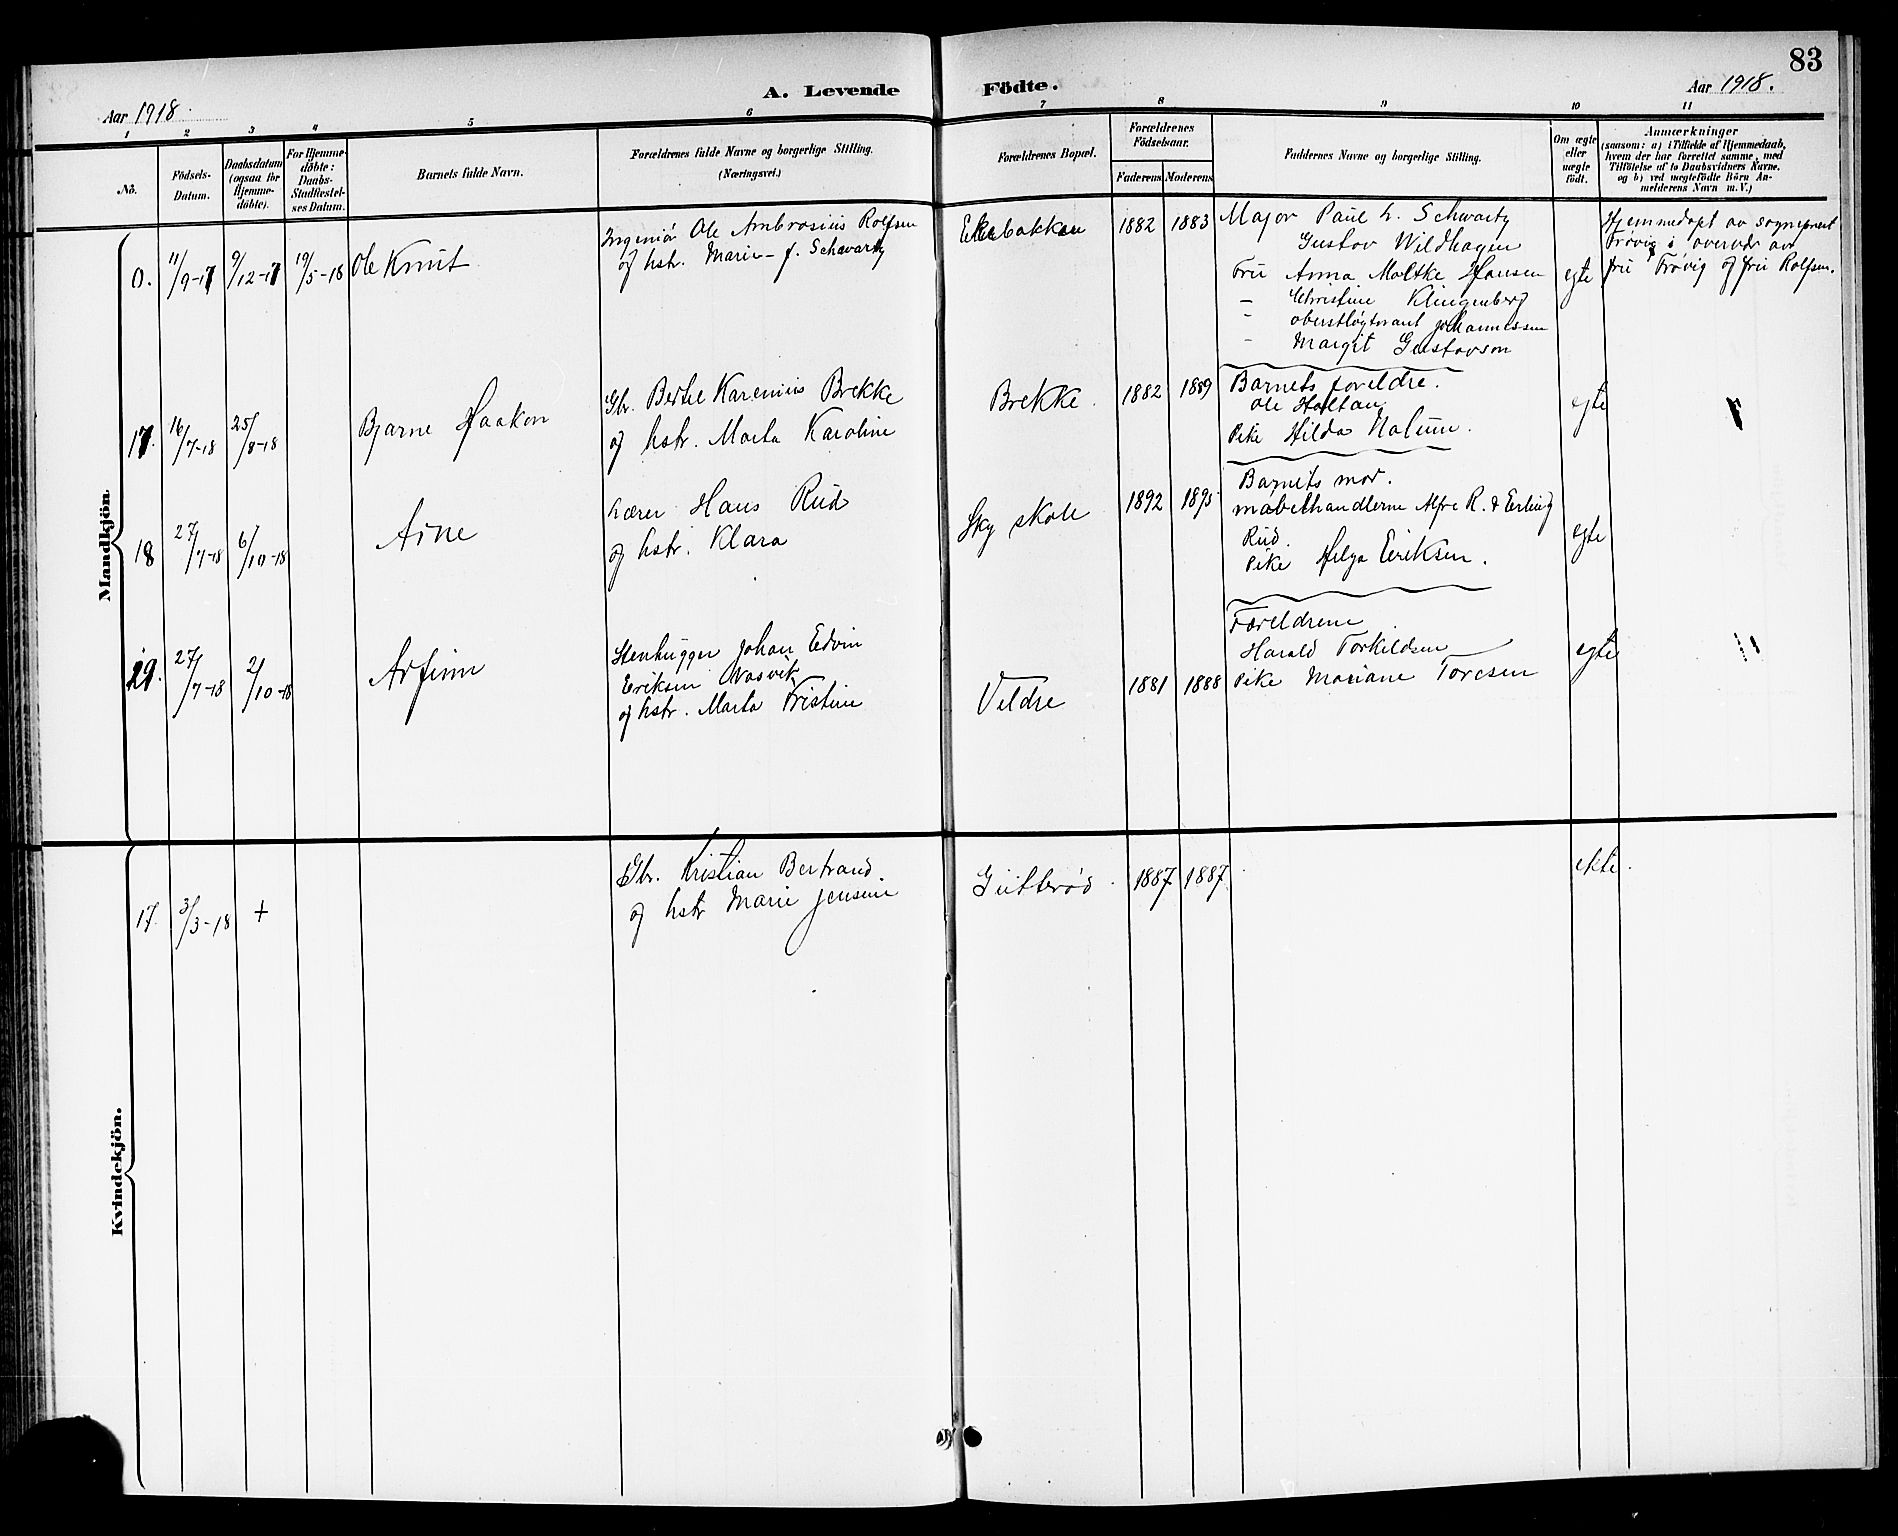 83
A. Levende Födte.
Aar 1918.
Aar 1918.
1 2 3 4 5 6 7 8 9 10 11
No.
Födsels-Datum.
Daabsdatum (ogsaa for Hjemme-döbte).
For Hjemme-döbte: Daabs-Stadfæstel-ses Datum.
Barnets fulde Navn.
Forældrenes fulde Navne og borgerlige Stilling.
(Næringsvei.)
Forældrenes Bopæl.
Forældrenes Födselsaar.
Faderens Moderens
Faddernes Navne og borgerlige Stilling.
Om ægte eller uægte födt.
Anmærkninger
(saasom: a) i Tilfælde af Hjemmedaab,
hvem der har forrettet samme, med
Tilföielse af to Daabsvidners Navne,
og b) ved uægtefödte Börn An-
melderens Navn m. V.)
Mandkjön.
0. 11/9-17 9/12-17 19/5-18 Ole Knut
Ingeniör Ole Ambrosius Rolfsen
og hstr. Marie f. Schwartz
Ekebakken 1882 1883
Major Paul L. Schwartz
Gustov Wildhagen
Fru Anna Moltke Hansen
— Christine Klingenberg
- oberstløgtnant Johannessen
- Margit Gustavson
egte
Hjemmedøpt av sogneprest
Trøvig i overvær av
fru Trøvig og fru Rolfsen.
17. 16/7-18 25/8-18 Bjarne Haakon
Gbr. Bertel Karenius Brekke
og hstr. Marta Karoline
Brekke. 1882 1889
Barnets foreldre.
Ole Holtan
Pike Hilda Nalum.
egte
18 27/7-18 6/10-18 Arne
Lærer Hans Rud
og hstr. Klara
Sky skole 1892 1895
Barnets mor.
møbelhandlerne Alfre R. & Erling
Rud.
Pike Helga Eriksen.
egte
19. 27/7-18 2/10-18 Arfinn
Stenhugger Johan Edvin
Eriksen Nasvik
og hstr. Marta Kristine
Veldre 1881 1888
Foreldrene
Harald Torkildsen
Pike Mariane Toresen
egte
Kvindekjön.
17. 3/3-18 +
Gbr. Kristian Bertrand.
og hstr Marie Jensine
Gutterød. 1887 1887
ekte